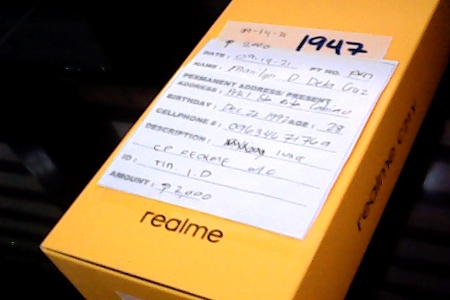 09-14-21
₱ 2,000 1947
DATE: 09.14.21 PT NO.
NAME: Marilyn D Dela Cruz
PERMANENT ADDRESS/PRESENT
ADDRESS:
BIRTHDAY: Dec 22 1992 AGE: 28
CELLPHONE #: 09634671769
DESCRIPTION: 1 unit
CP REALME
ID: Tin I.D
AMOUNT: ₱2,000
realme
realme